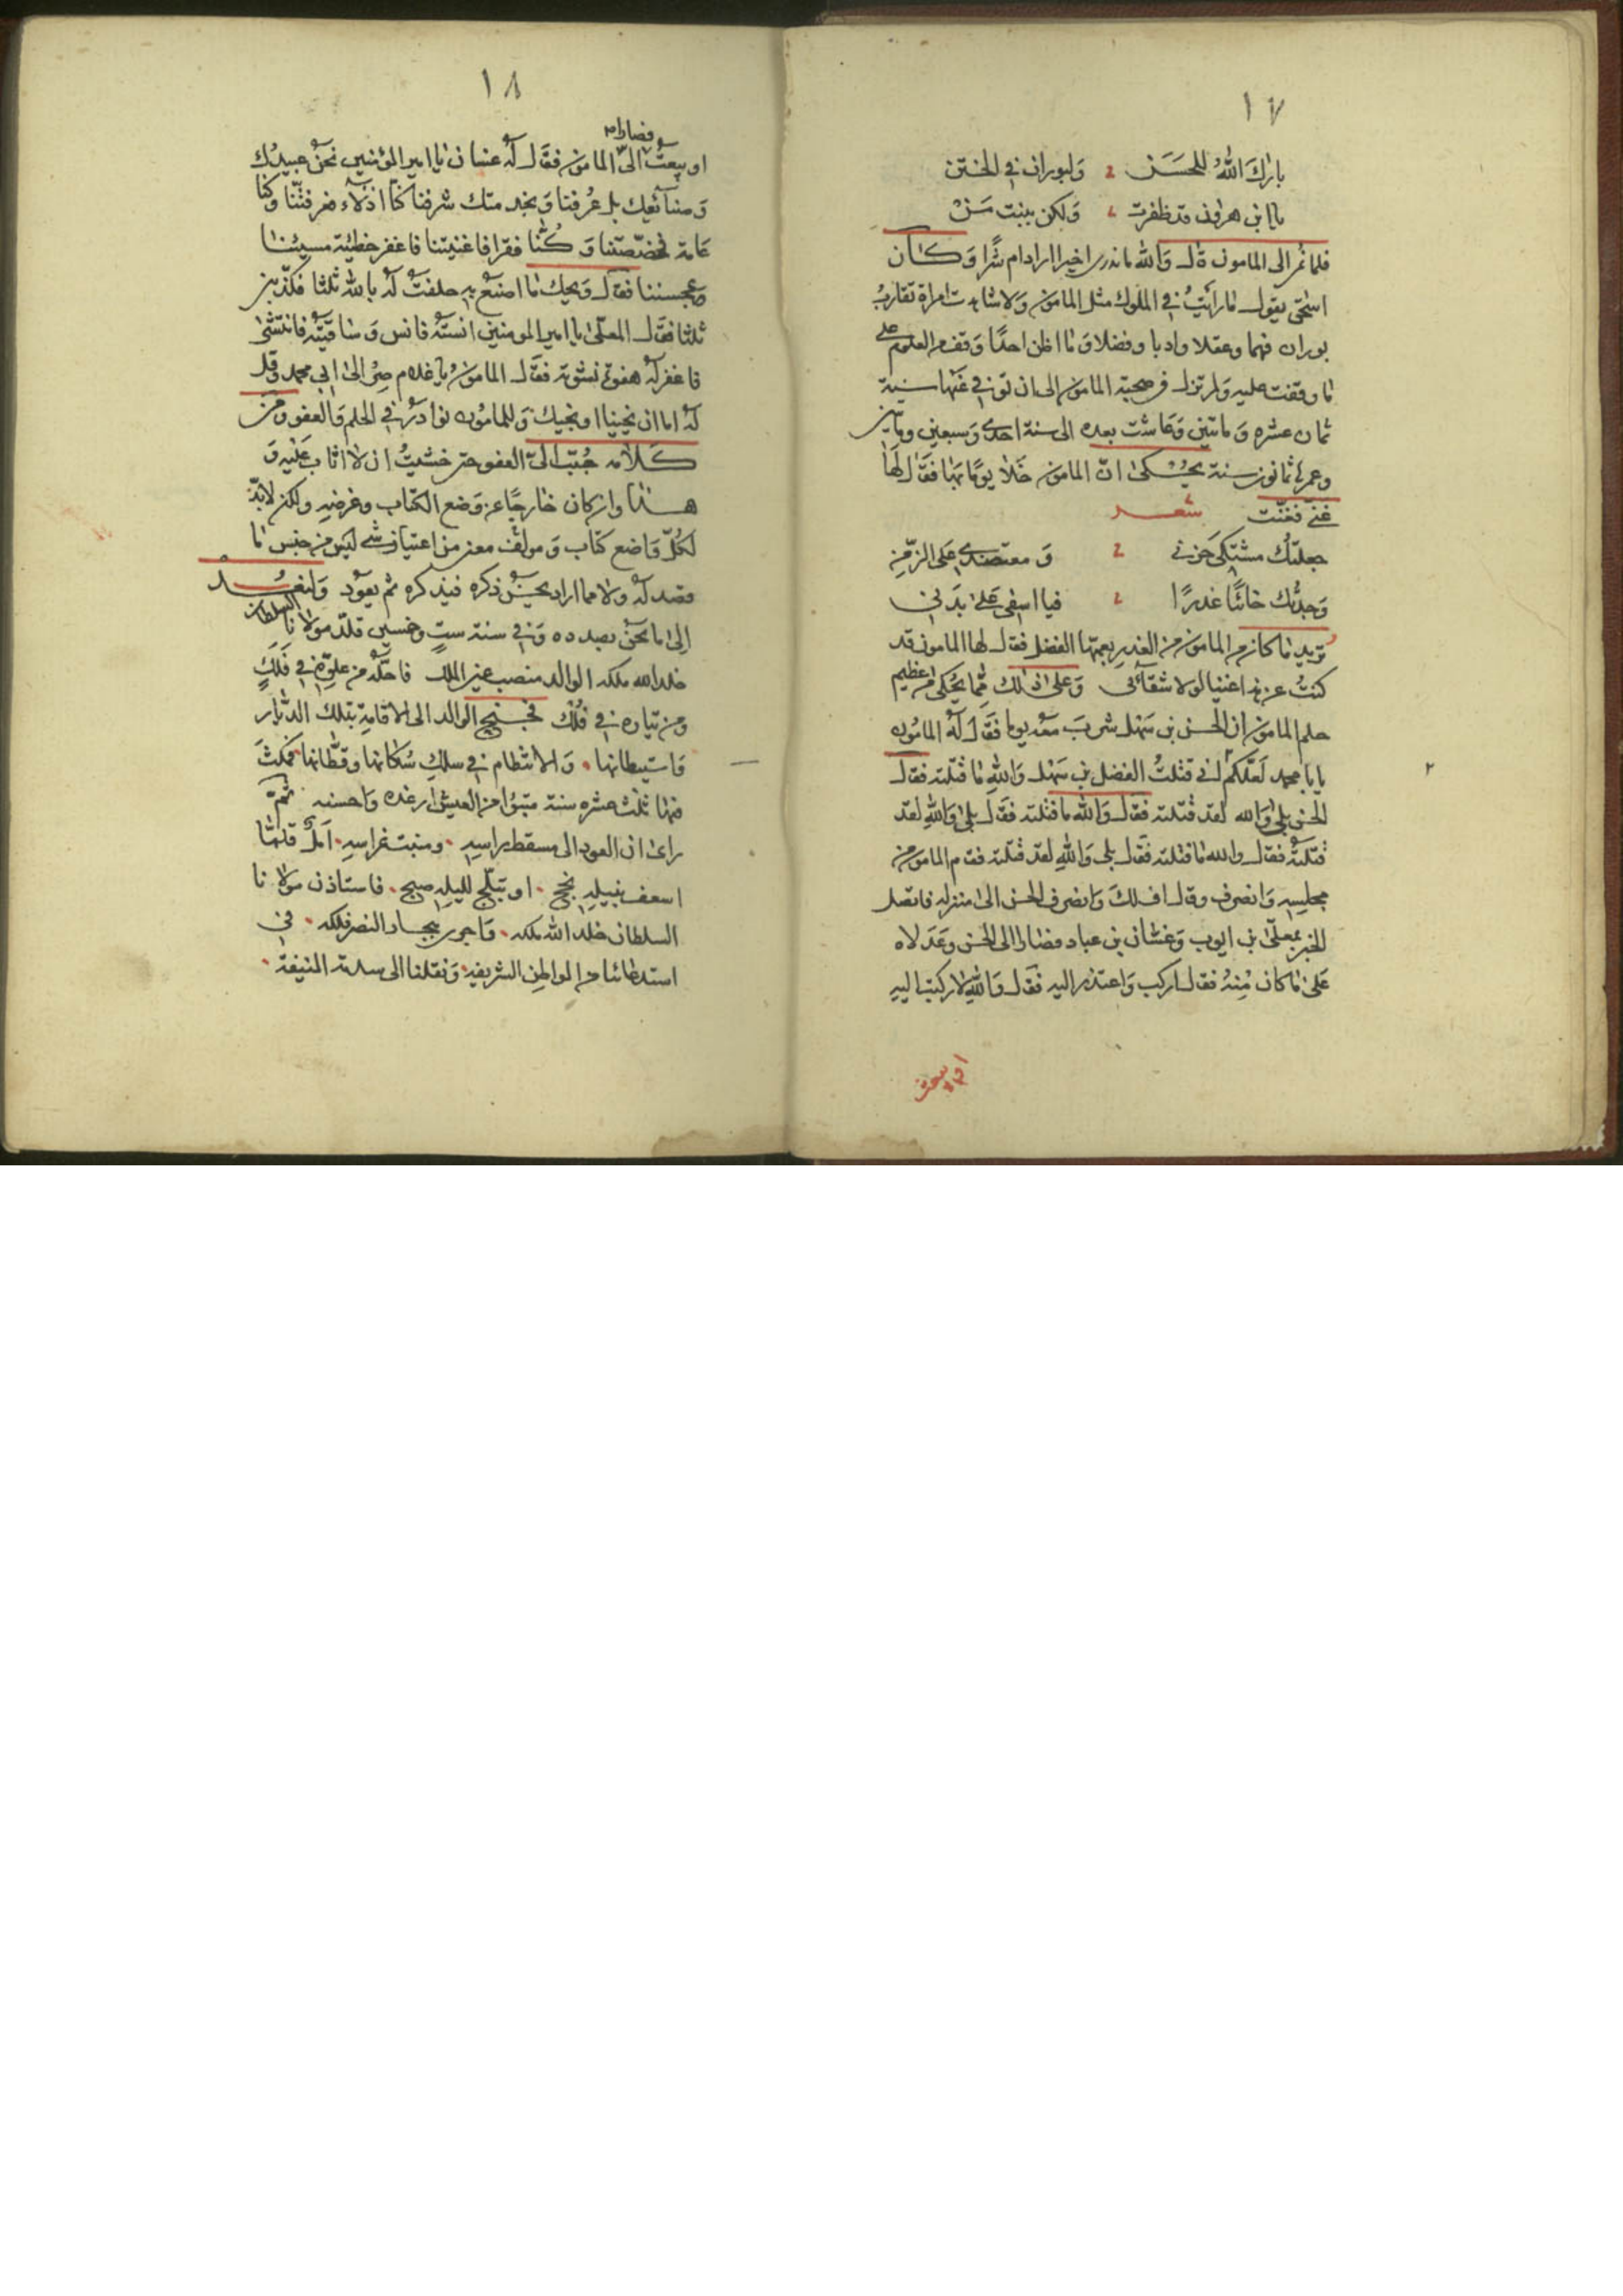 ١٧
بارك اللهُ للحسَن ولبوران في الختن
يا ابن هرون قد ظفرت ولكن ببنت مَنْ
فلما نمى الى المامون قال والله ما ندري اخيرا اراد ام شرًا وكان
اسحق يقول ما رايتُ في الملوك مثل المامون ولا شاهدت امراة تقاربُ
بوران فهما وعقلا وادبا وفضلا وما اظن احدًا وقف من العلوم على
ما وقفت عليه ولم تزل في صحبة المامون الى ان توفي عنها سنة
ثمان عشره ومائتين وعاشت بعده الى سنة احدى وسبعين ومايتين
وعمرها ثمانون سنة يحكى انّ المامون خلا يومًا بها فقال لها
غنّي فغنّت شعر
جعلتك مشتكى حزني ومعتضدي على الزمنِ
وجدتك خائنًا غدرًا فيا اسفى على بدني
تريد ما كان من المامون من الغدر بعمها الفضل فقال لها المامون قد
كنتُ عن هذا غنيا لولا شقائي وعلى ذلك مما يحكى من عظيم
حلم المامون ان الحسن بن سهل شرب معه يوما فقال له المامون
يابا محمد لعلكم اني قتلتُ الفضل بن سهل والله ما قتلته فقال
الحسن بلى والله لقد قتلته فقال والله ما قتلته فقال بلى والله لقد
قتلته فقال والله ما قتلته فقال بلى والله لقد قتلته فقام المامون من
مجلسه وانصرف وقال اف لك وانصرف الحسن الى منزله فاتصل
الخبر بمعلى بن ايوب وغسان بن عباد فصارا الى الحسن وعدلاه
على ما كان منه فقال اركب واعتذر اليه فقال والله لا ركبت اليه
٢
١٨
فصارا
او يبعث الى المامون فقال له غسان يا امير المؤمنين نحن عبيدك
وصنائعك بك عرفنا وبخدمتك شرفنا كنا اذلاء فعرفتنا وكنا
عامة فخصّصتنا وكُنّا فقرا فاغنيتنا فاغفر خطيئة مسيئنا
لمحسننا فقال ويحك ما اصنع به حلفت له بالله ثلثا فكذّبني
ثلثا فقال المعلى يا امير المومنين انسته فانس وساقيته فانتشى
فاغفر له هفوة نشوته فقال المامون يا غلام صِر الى ابي محمد وقل
له اما ان تجينا او نجيك وللمامون نوادر في الحلم والعفو ومن
كلامه حُبّب اليّ العفو حتى خشيتُ ان لا اثاب عليه و
هذا وان كان خارجًا عن وضع الكتاب وغرضه ولكن لا بدّ
لكلّ واضع كتاب ومولف معنى من اعتياز شي ليس من جنس ما
قصد له ولا مما اراد يحسُن ذكره فيذكره ثم يعود ولنعُد
الى ما نحن بصدده وفي سنة ستٍ وخمسين قلّد مولانا السلطان
خلد الله ملكه الوالد منصب عزيز الملك فاحلّه من علوّه في فَلَكٍ
ومن تياره في فُلْك فجنح الوالد الى الاقامة بتلك الديار
واستيطانها والانتظام في سلك سُكانها وقطّانها فمكث
فيها ثلث عشره سنة متبوّا من العيش ارغده واحسنه ثم
راى ان العود الى مسقط راسه ومنبت غراسه امل قلّما
اسعف بنيله نجح او تبلّج لليله صبح فاستاذن مولانا
السلطان خلد الله ملكه واجرى ببحار النصر فلكه في
استدعائنا من المواطن الشريفة ونقلنا الى سدته المنيفة